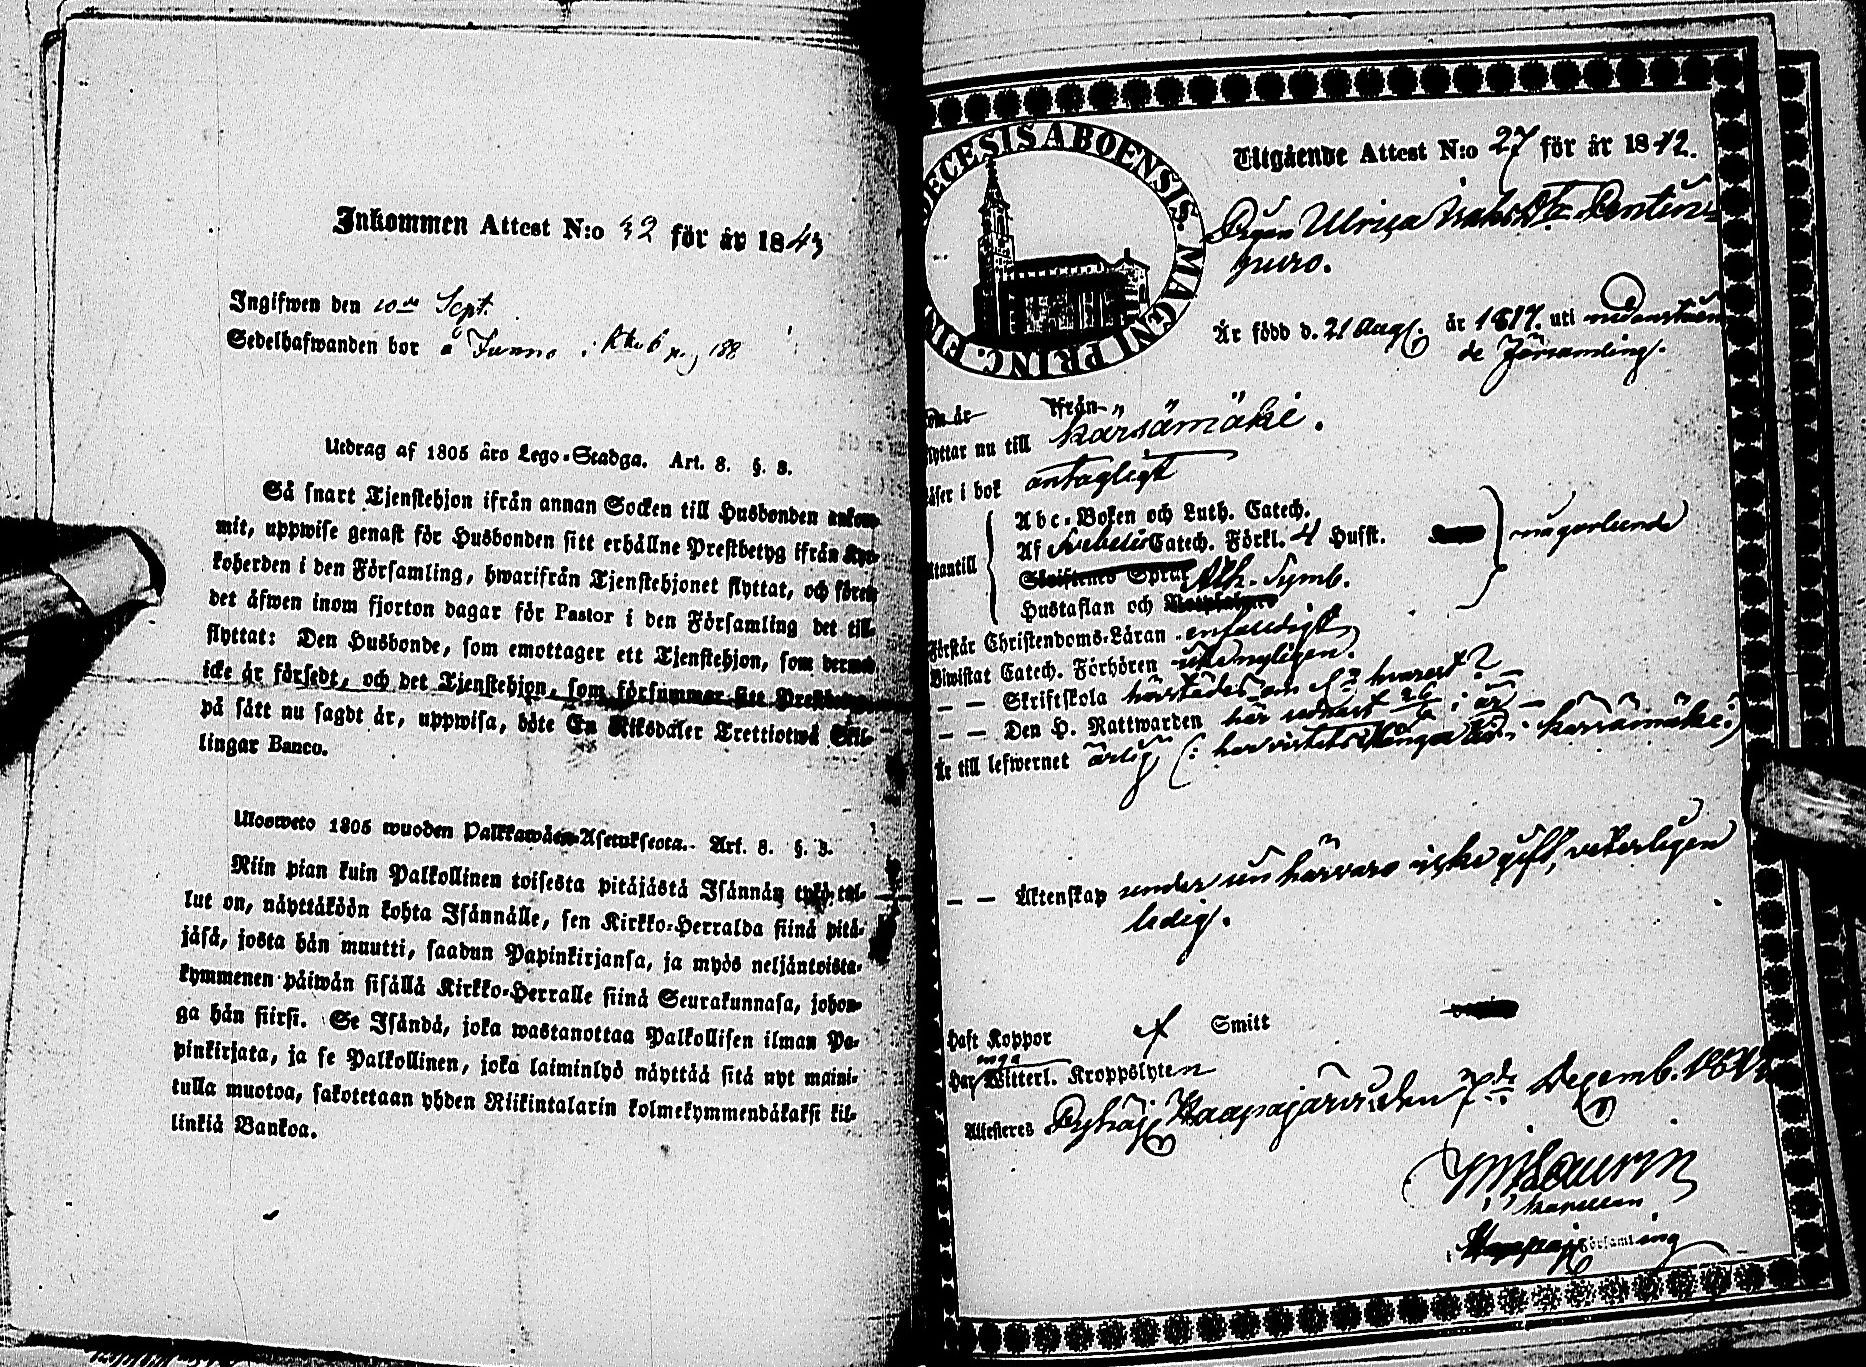 Inkommen Attest N:o 32 för år 1843
Ingifwen den 10de Sept.
Sedelhafwanden bor å Junno i K.k.b pag 188
Utdrag af 1805 års Lego-Stadga. Art. 8. §. 3.
Så snart Tjenstehjon ifrån annan Socken till Husbonden ankom-
mit, uppwise genast för Husbonden sitt erhållne Prestbetyg ifrån Kyr-
koherden i den Församling, hwarifrån Tjenstehjonet flyttat, och förete
det äfwen inom fjorton dagar för Pastor i den Församling det till-
flyttat: Den Husbonde, som emottager ett Tjenstehjon, som dermed
icke är försedt, och det Tjenstehjon, som försummar sitt Prestbetyg
på sätt nu sagdt är, uppwisa, böte En Riksdaler Trettiotwå Skil-
lingar Banco.
Ulosweto 1805 wuoden Palkkawäen-Asetuksesta. Art. 8. §. 3.
Niin pian kuin Palkollinen toisesta pitäjästä Isännän tykö tul-
lut on, näyttäköön kohta Isännälle, sen Kirkko-Herralda siinä pitä-
jäsä, josta hän muutti, saadun Papinkirjansa, ja myös neljäntoista-
kymmenen päiwän sisällä Kirkko-Herralle siinä Seurakunnasa, johon-
ga hän siirsi. Se Isändä, joka wastanottaa Palkollisen ilman Pa-
pinkirjata, ja se Palkollinen, joka laiminlyö näyttää sitä nyt maini-
tulla muotoa, sakotetaan yhden Riikintalarin kolmekymmendäkaksi kil-
linkiä Bankoa.
DIOECESIS ABOENSIS. MAGNI PRINC. FIN
Utgående Attest N:o 27 för år 1842.
Pigan Ulrica Isaksdr Pentin-
puro.
Är född d. 21 Aug. år 1817. uti
de Församling.
kom år ifrån
flyttar nu till Kärsämäki.
Läser i bok antagligt
Utantill
Abc-Boken och Luth. Catech.
Af Svebelii Catech. Förkl. 4 Hufst.
Skriftenes Språk Ath. Symb.
Hustaflan och
någorlunda
Förstår Christendoms-Läran enfaldigt
Biwistat Catech. Förhören
— — Skriftskola hvarest?
— — Den H. Nattwarden här sednast
Är till lefwernet ärlig (: har vistats i Kärsämäki:)
— — Äktenskap under sin härvaro icke gift, veterligen
ledig.
Haft Koppor ej Smitt
Har inga Witterl. Kroppslyten
Attesteras Pyhäj. Haapajärvi den 7de Decemb. 1842
Laurin
Kapellan
i Haapaj. Församling